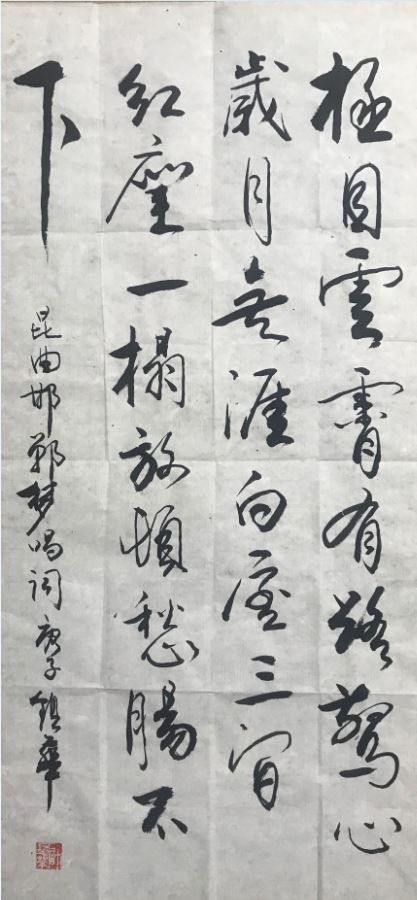 極目雲霄有路驚心
歲月無涯白屋三間
紅塵一榻放頓愁腸不
下
昆曲邯鄲梦唱词庚子